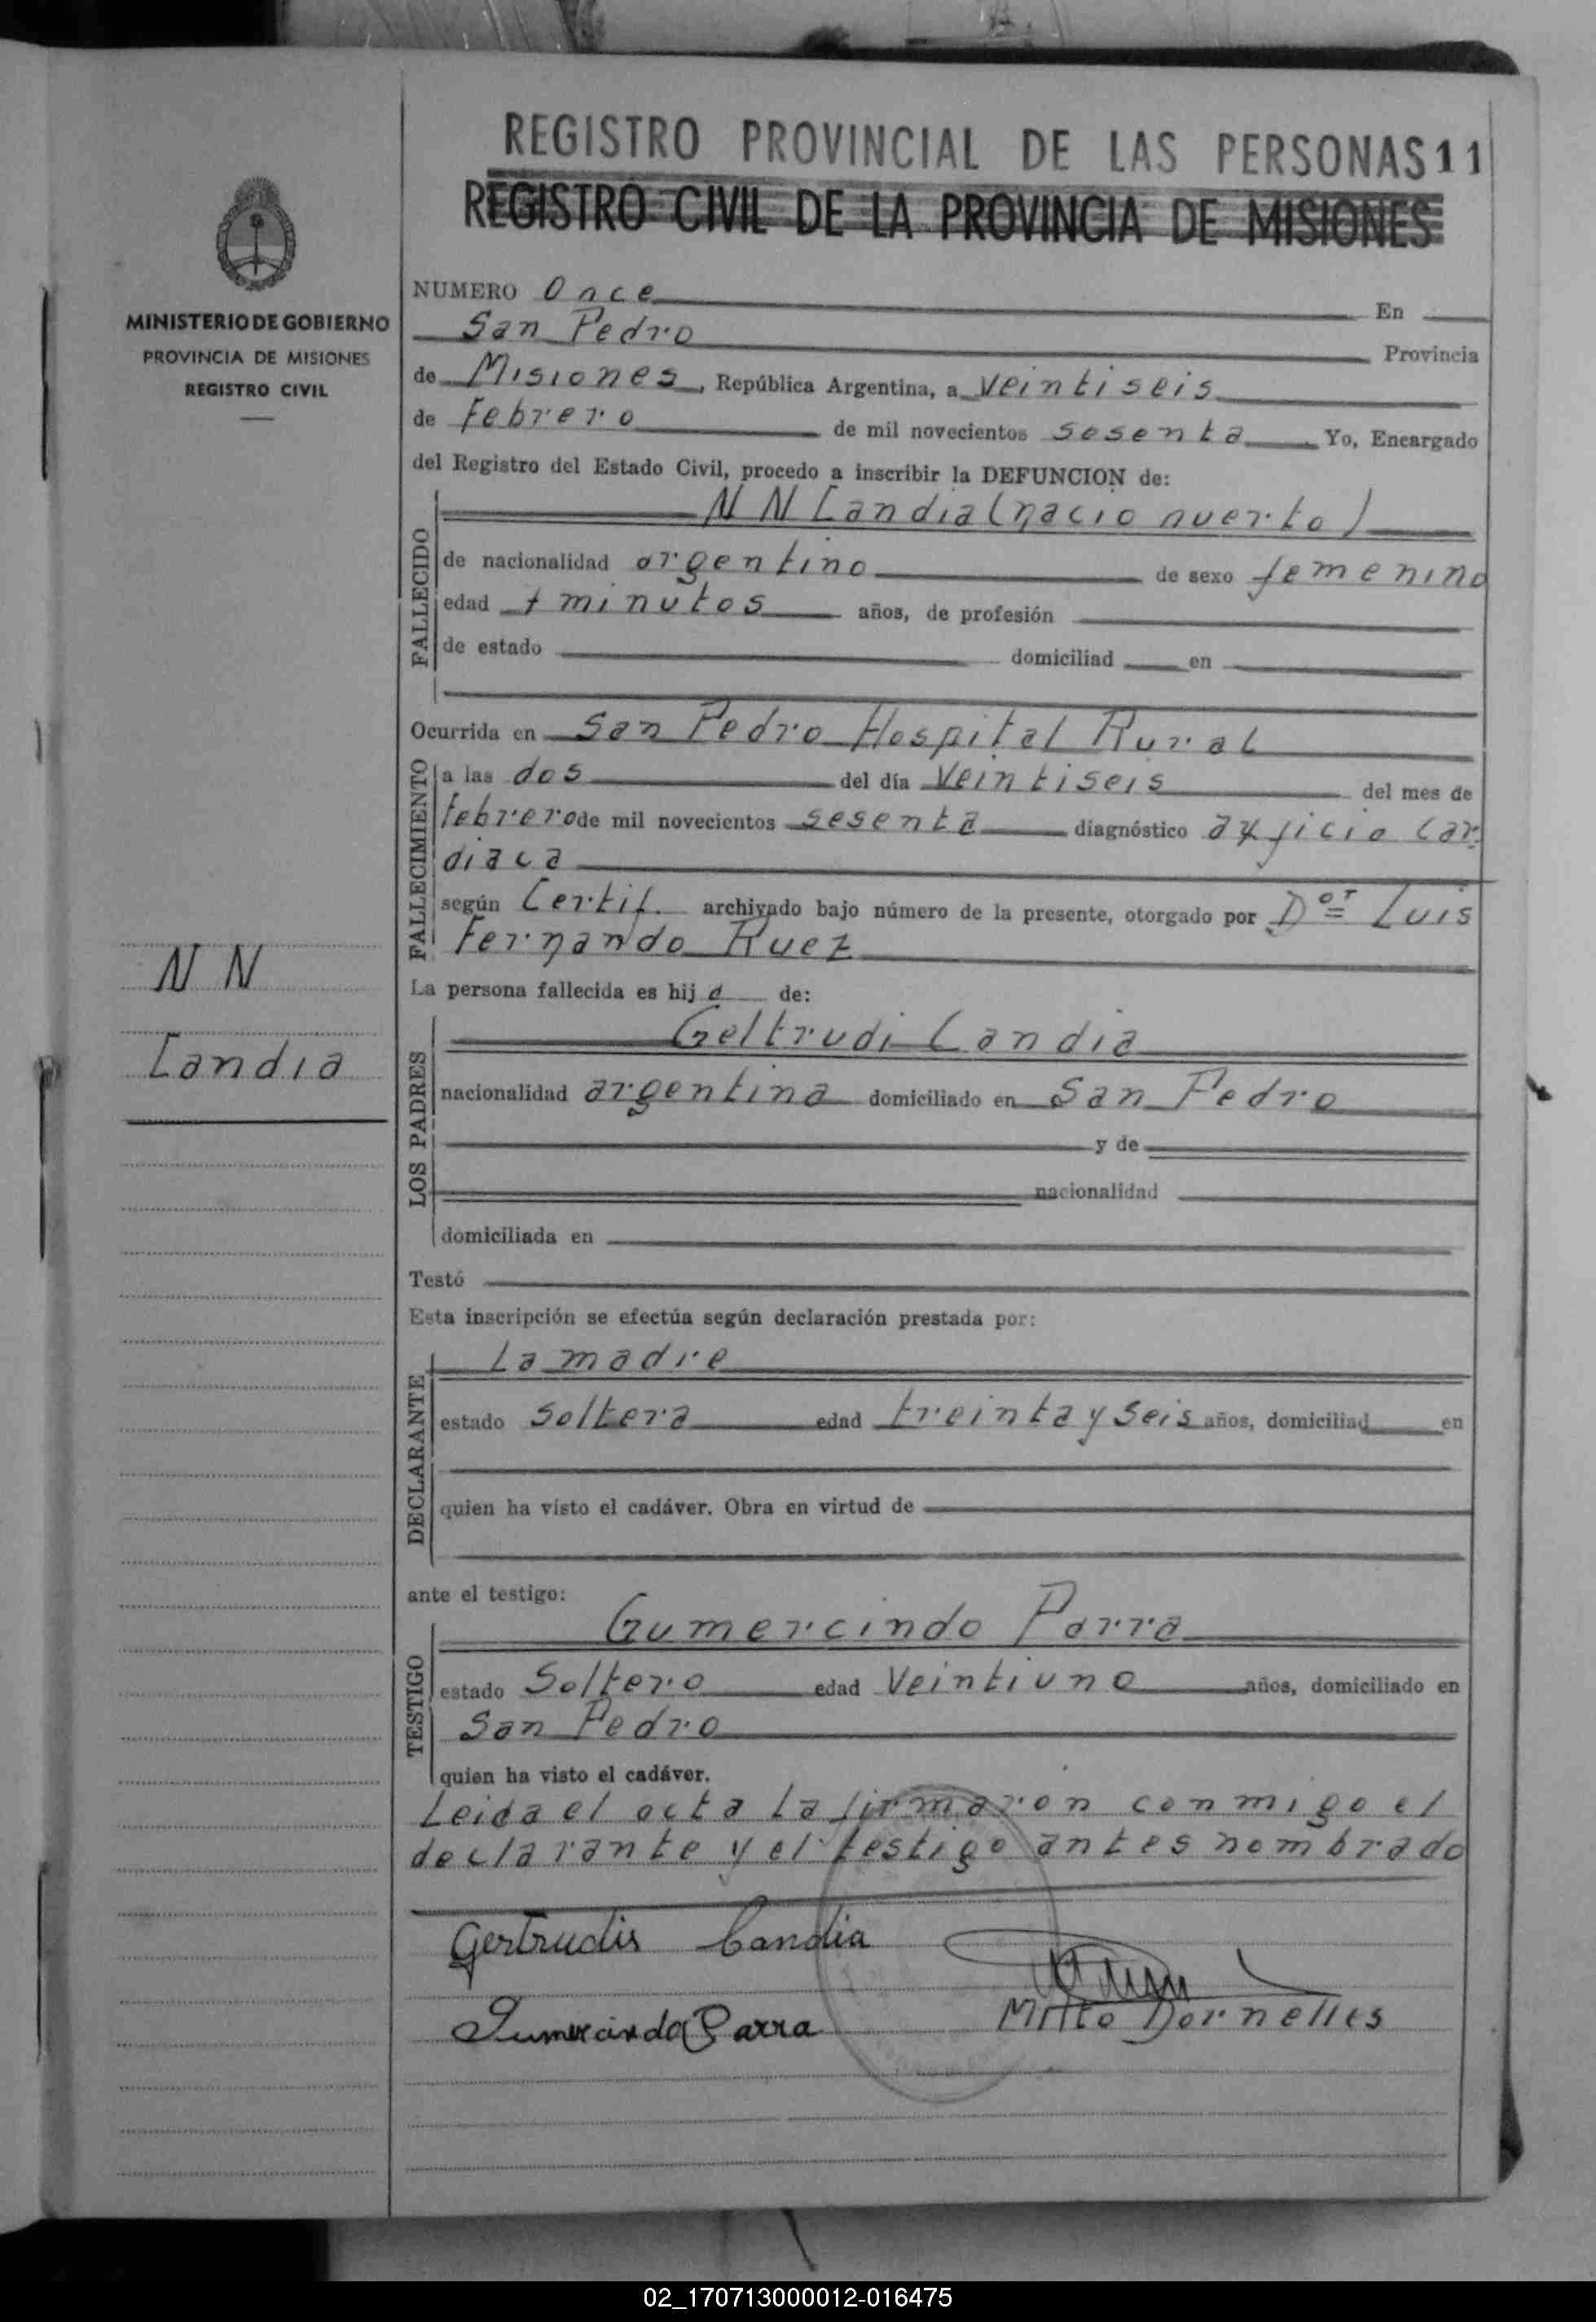 REGISTRO PROVINCIAL DE LAS PERSONAS 11
REGISTRO CIVIL DE LA PROVINCIA DE MISIONES
MINISTERIO DE GOBIERNO
PROVINCIA DE MISIONES
REGISTRO CIVIL
NUMERO Once En
San Pedro Provincia
de Misiones, República Argentina, a veintiseis
de Febrero de mil novecientos sesenta Yo, Encargado
del Registro del Estado Civil, procedo a inscribir la DEFUNCION de:
FALLECIDO
N N Candia (nacio nuerto)
de nacionalidad argentino de sexo femenino
edad minutos años, de profesión
de estado domiciliad en
Ocurrida en San Pedro Hospital Rural
FALLECIMIENTO
a las dos del día veintiseis del mes de
febrero de mil novecientos sesenta diagnóstico axficia car
diaca
según Certif. archivado bajo número de la presente, otorgado por Dor Luis
Fernando Ruez
N N
Candia
La persona fallecida es hij a de:
LOS PADRES
Geltrudi Candia
nacionalidad argentina domiciliado en San Pedro
y de
nacionalidad
domiciliada en
Testó
Esta inscripción se efectúa según declaración prestada por:
DECLARANTE
La madre
estado soltera edad treinta y seis años, domiciliad en
quien ha visto el cadáver. Obra en virtud de
ante el testigo:
TESTIGO
Gumercindo Parra
estado Soltero edad Veintiuno años, domiciliado en
San Pedro
quien ha visto el cadáver.
Leida el acta la firmaron conmigo el
declarante y el testigo antes nombrado
Gertrudis Candia
Gumercindo Parra
Milto Dornelles
02_170713000012-016475